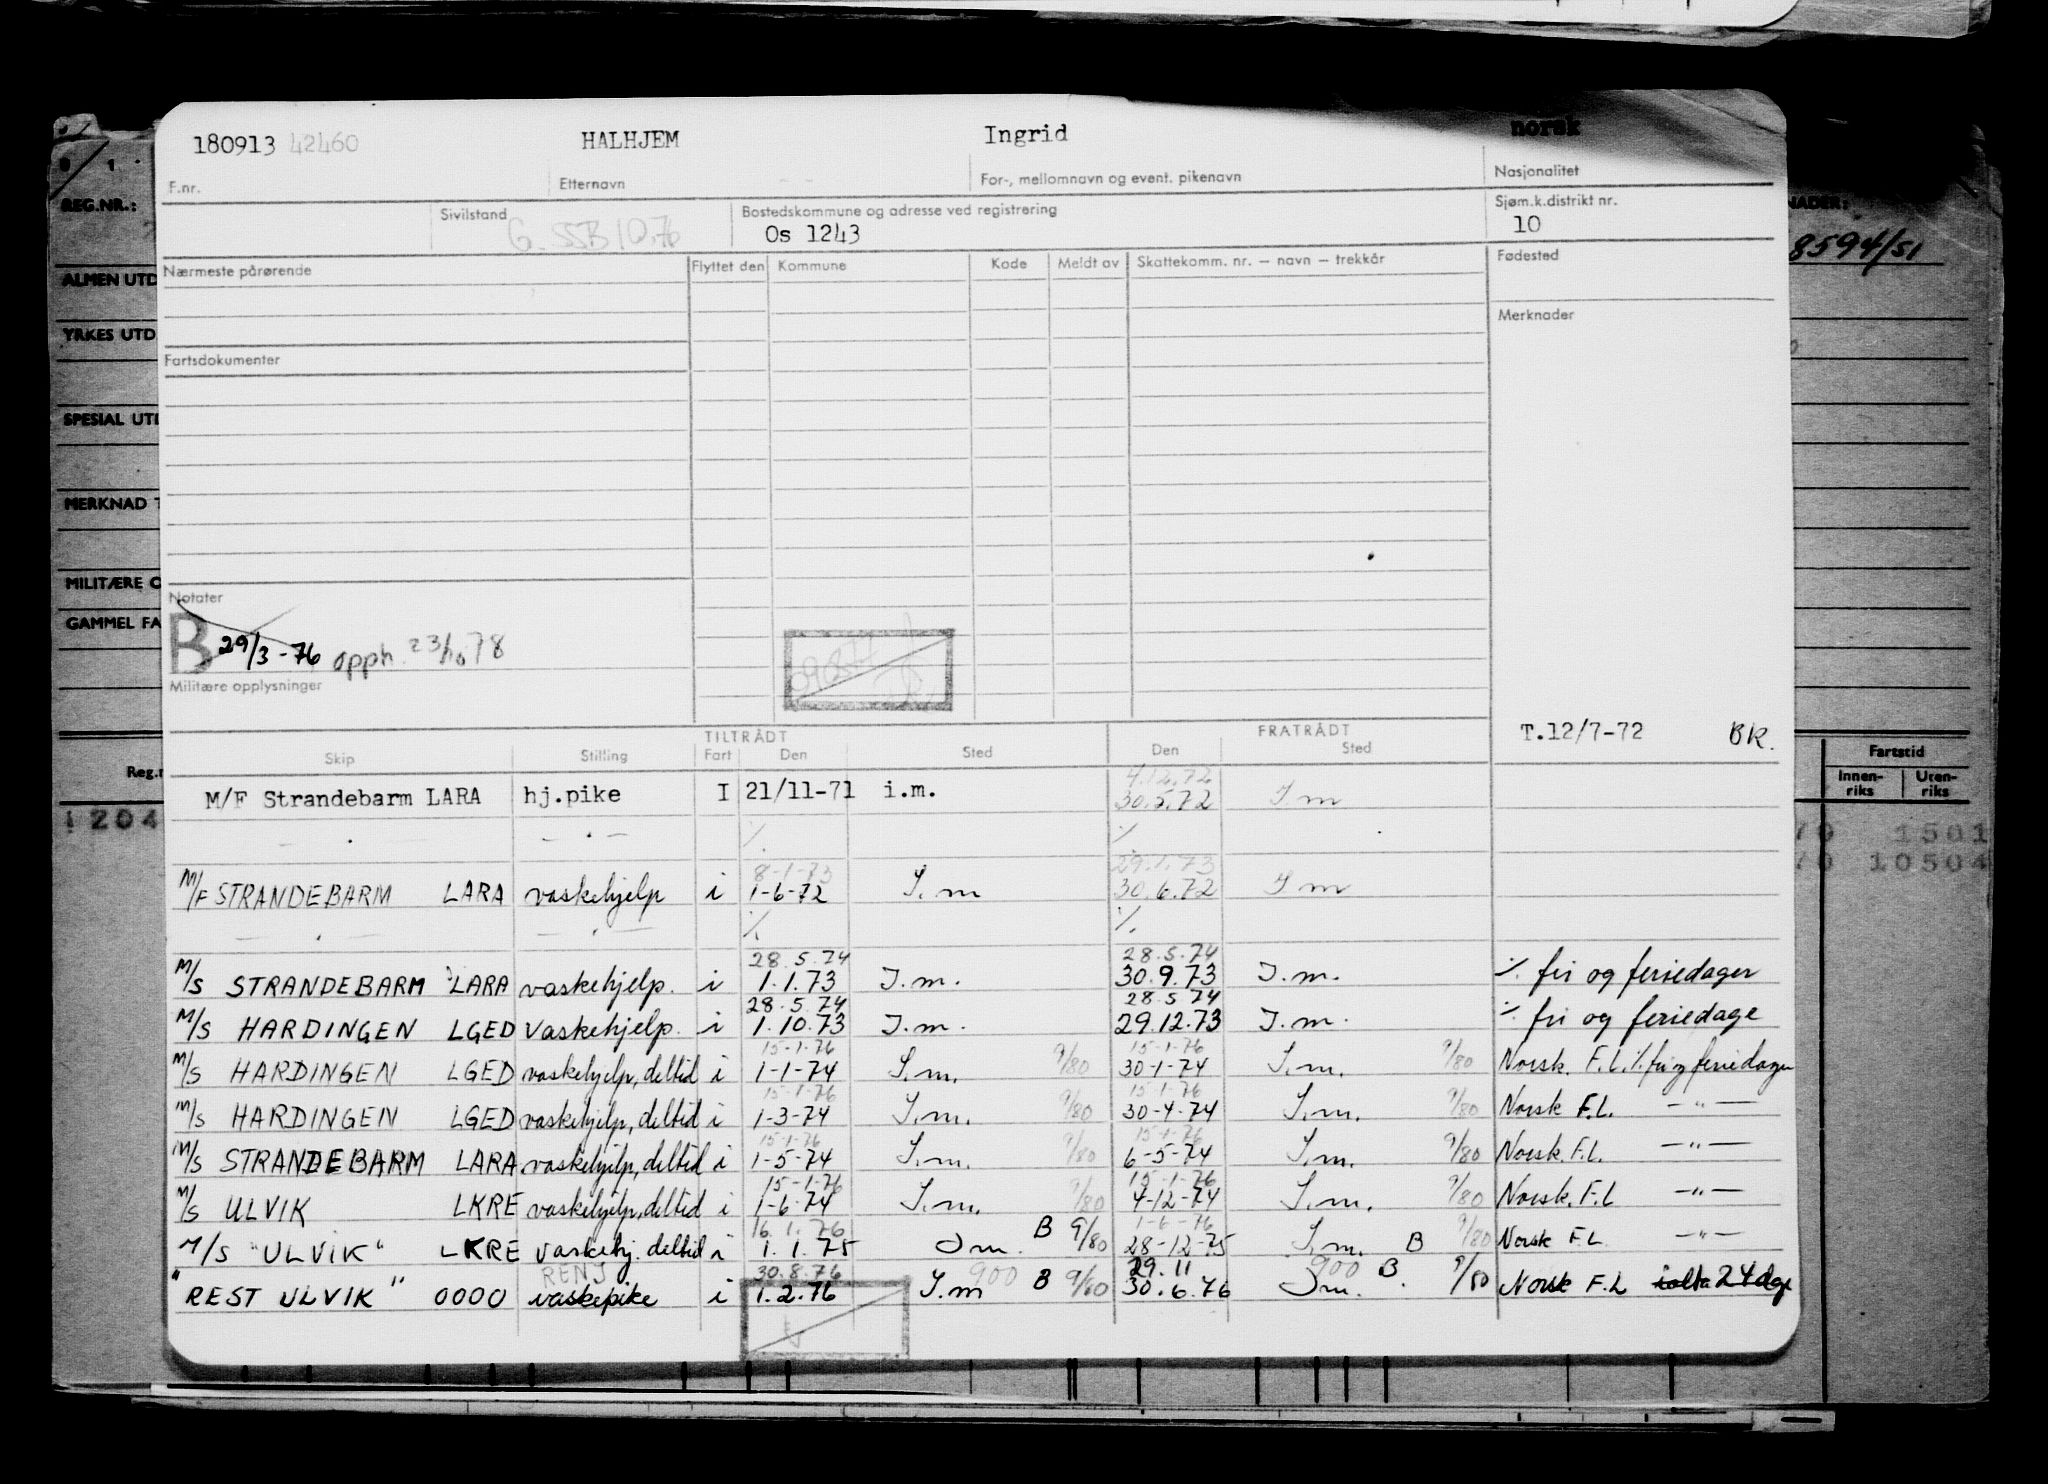 180913 42460 HALHJEM Ingrid norsk
F.nr. Etternavn For-, mellomnavn og event. pikenavn Nasjonalitet
Sivilstand Bostedskommune og adresse ved registrering Sjøm.k.distrikt nr.
Os 1243 10
Nærmeste pårørende Flyttet den Kommune Kode Meldt av Skattekomm. nr. — navn — trekkår Fødested
Merknader
Fartsdokumenter
Notater
B 29/3-76 opph. 23/10 78
Militære opplysninger
T.12/7-72 BK.
TILTRÅDT FRATRÅDT
Skip Stilling Fart Den Sted Den Sted
4.12.72
M/F Strandebarm LARA hj.pike I 21/11-71 i.m. 30.5.72 I m
8-1-73 29.1.73
M/F STRANDEBARM LARA vaskehjelp i 1-6-72 I.m 30.6.72 I m
28.5.74 28.5.74
M/S STRANDEBARM LARA vaskehjelp. i 1.1.73 I.m. 30.9.73 I.m. ./. fri og feriedager
28.5.74 28.5.74
M/S HARDINGEN LGED Vaskehjelp. i 1.10.73 I.m. 29.12.73 I.m. ./. fri og feriedage
15-1-76 15-1-76
M/S HARDINGEN LGED vaskehjelp, deltid i 1-1-74 I.m. 9/80 30-1-74 I.m. 9/80 Norsk. F.L. ./. fri og feriedager
15-1-76 15-1-76
M/S HARDINGEN LGED vaskehjelp, deltid i 1-3-74 I.m. 9/80 30-4-74 I.m. 9/80 Norsk F.L. —"—
15-1-76 15-1-76
M/S STRANDEBARM LARA vaskehjelp, deltid i 1-5-74 I.m. 9/80 6-5-74 I.m. 9/80 Norsk. F.L. —"—
15-1-76 15-1-76
M/S ULVIK LKRE vaskehjelp, deltid i 1-6-74 I.m. 9/80 4-12-74 I.m. 9/80 Norsk. F.L —"—
16.1.76 1-6-76
M/S "ULVIK" LKRE vaskehj. deltid i 1.1.75 Im. B 9/80 28-12-75 I.m. B 9/80 Norsk F.L. —"—
RENJ 30.8.76 900 29.11 900
"REST ULVIK" 0000 vaskepike i 1.2.76 I.m B 9/80 30.6.76 Im. B 9/80 Norsk F.L ialta 24 dge
REG.NR.:
ALMEN UTD
YRKES UTD
SPESIAL UTD
MERKNAD T
MILITÆRE O
GAMMEL FA
Reg.n
1204
NADER:
8594/51
Fartstid
Innen-riks Uten-riks
70 1501
70 10504